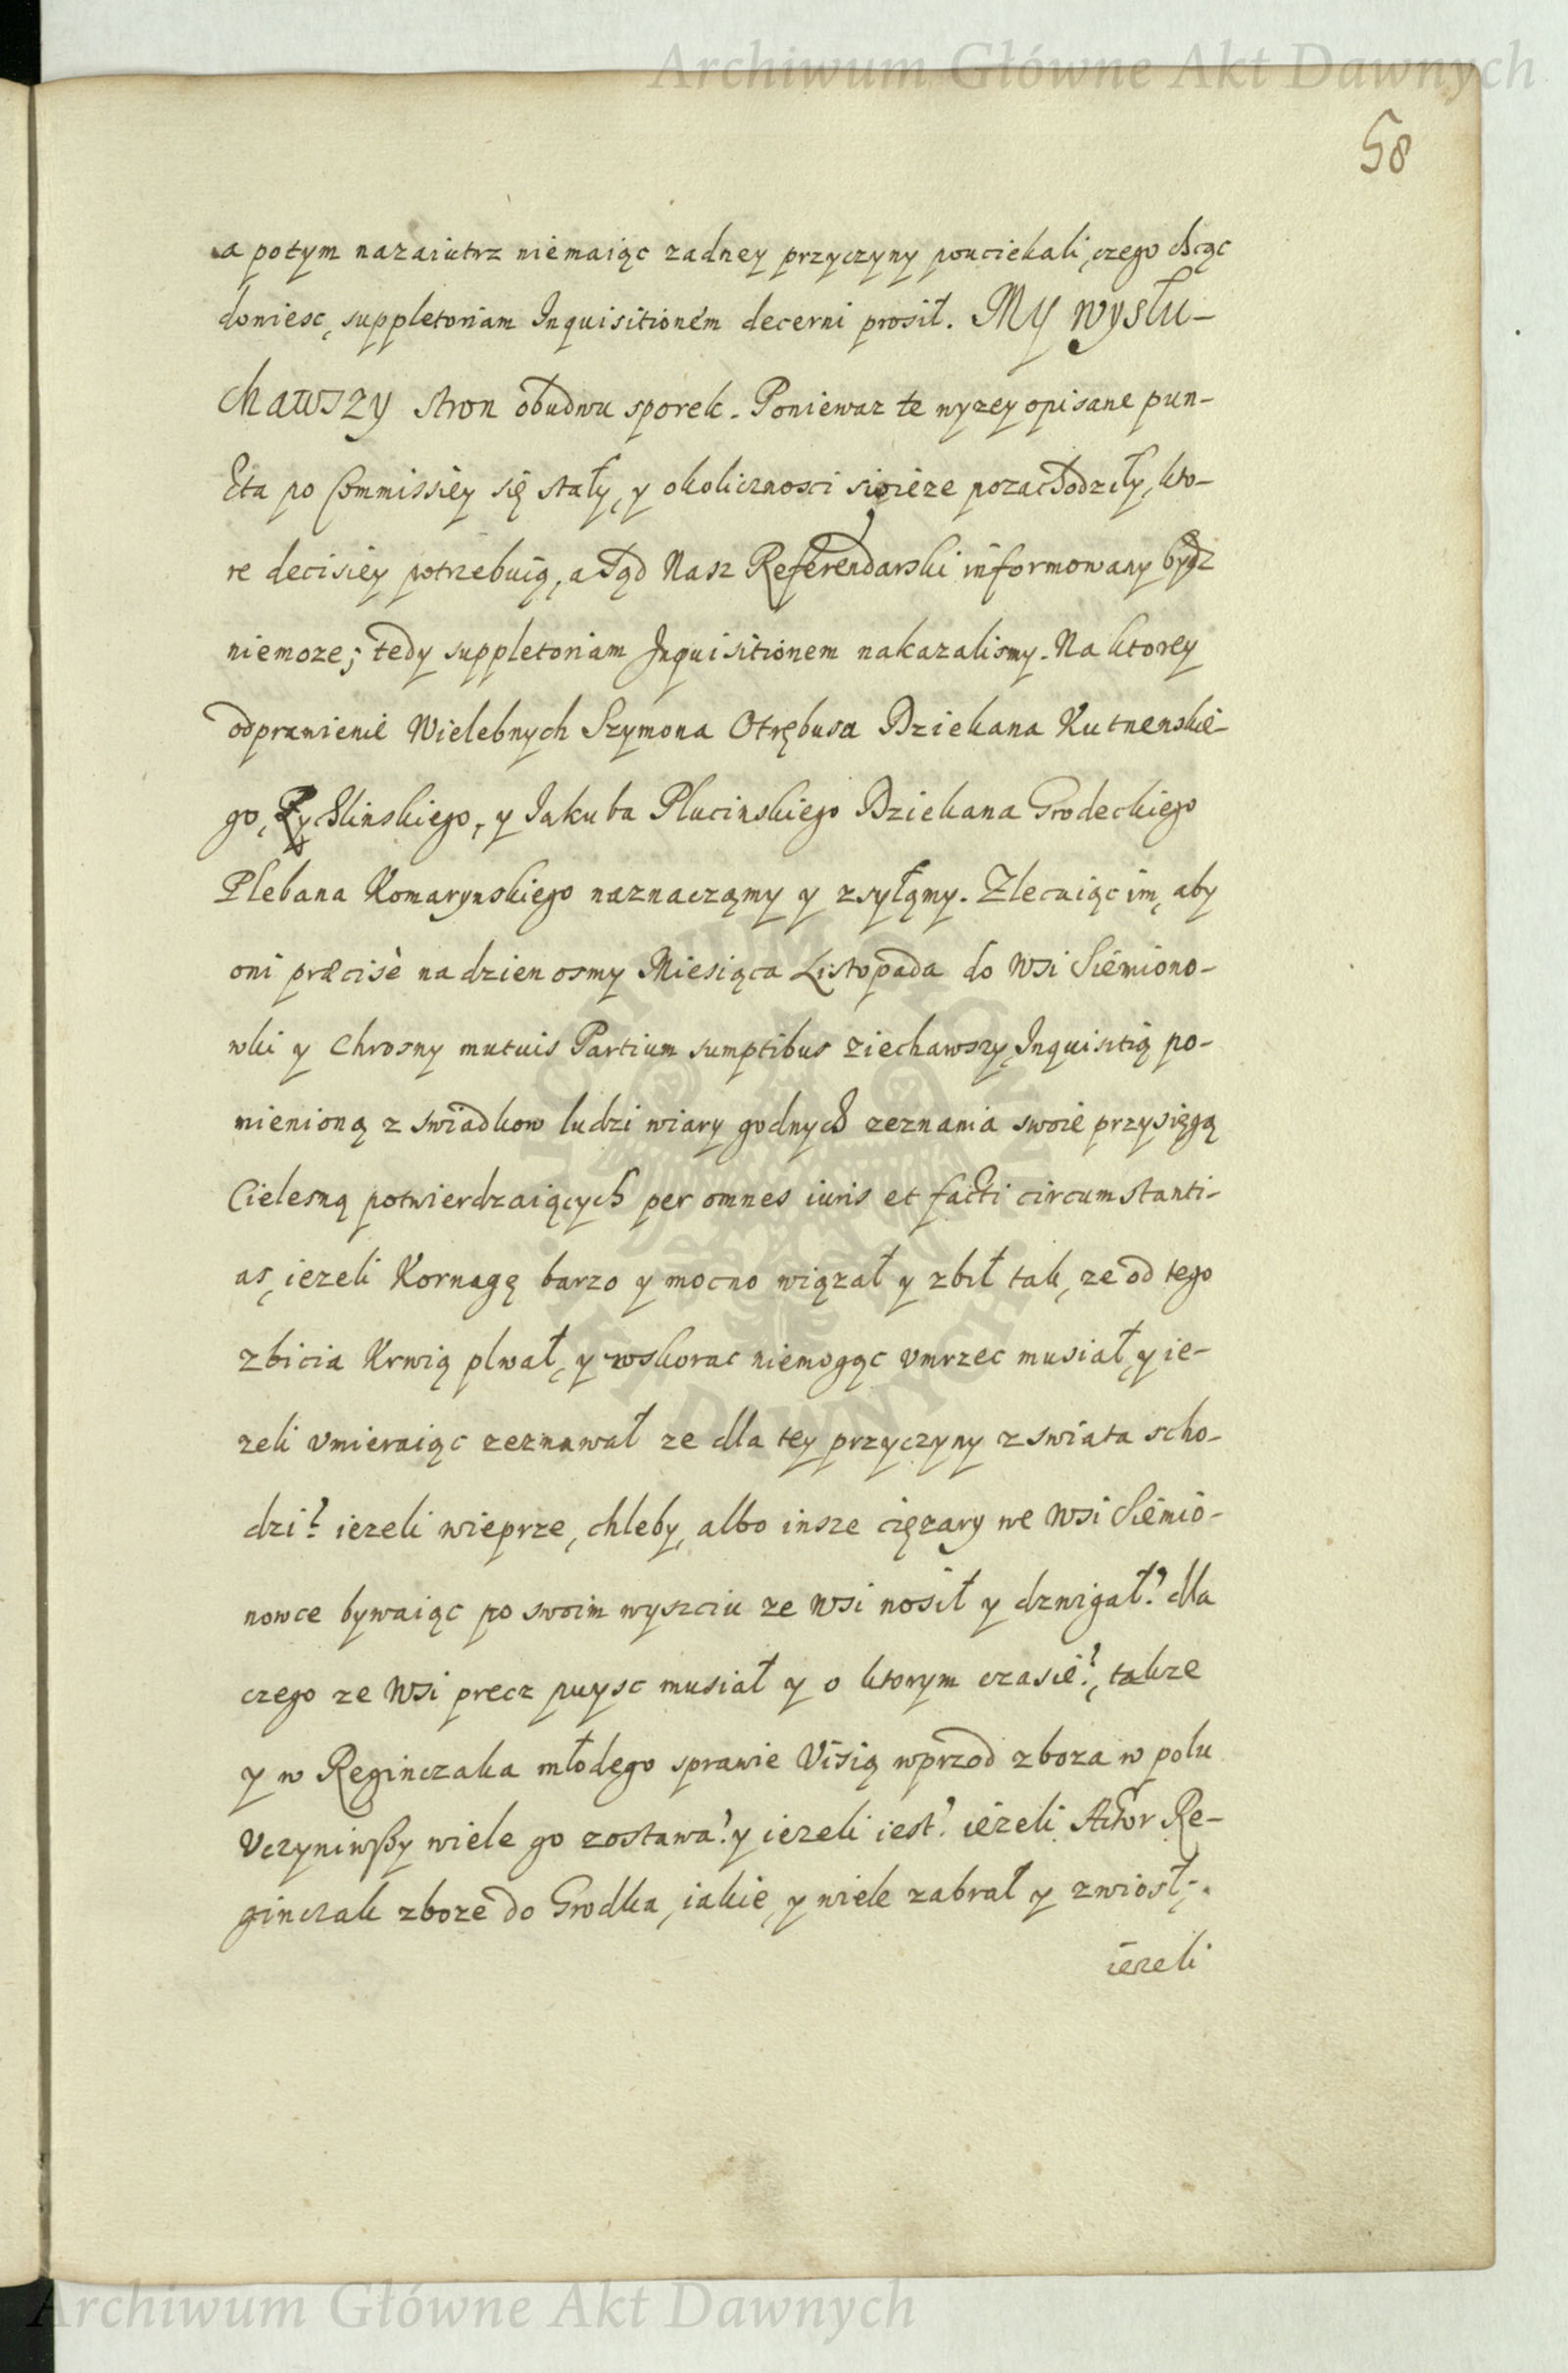 Archiwum Główne Akt Dawnych
58
a potym nazaiutrz niemaiąc zadney przyczyny pouciekali, czego chcąc
doniesc, suppletoriam Inquisitionem decerni prosił. MY wysłu-
chawszy stron obudwu sporek. Poniewaz te wyzey opisane pun-
kta po Commissiey się stały, y okolicznosci swieze pozachodziły, kto-
re decisiey potrzebuią, a Sąd Nasz Referendarski informowany bydz
niemoze; tedy suppletoriam Inquisitionem nakazalismy. Na ktorey
odprawienie Wielebnych Szymona Otrębusa Dziekana Kutnenskie-
go, Zychlinskiego, y Jakuba Plucinskiego Dziekana Grodeckiego
Plebana Komarynskiego naznaczamy y zsyłamy. Zlecaiąc im, aby
oni præcisè na dzien osmy Miesiąca Listopada do Wsi Siemiono-
wki y Chrosny mutuis Partium sumptibus ziechawszy, Inquisitią po-
mienioną z swiadkow ludzi wiary godnych zeznania swoie przysięgą
Cielesną potwierdzaiących per omnes iuris et facti circumstanti-
as, iezeli Kornagę barzo y mocno wiązał y zbił tak, ze od tego
zbicia Krwią plwał, y wskorac niemogąc vmrzec musiał, y ie-
zeli vmieraiąc zeznawał ze dla tey przyczyny z swiata scho-
dzi? iezeli wieprze, chleby, albo insze cięzary we Wsi Siemio-
nowce bywaiąc po swoim wyszciu ze Wsi nosił y dzwigał? dla
czego ze Wsi precz puysc musiał y o ktorym czasie?, takze
y w Reginczaka młodego sprawie Visią wprzod zboza w polu
Vczyniwszy wiele go zostawa? y iezeli iest? iezeli Aktor Re-
ginczak zboze do Grodka, iakie, y wiele zabrał y zwiosł,-.
iezeli
Archiwum Główne Akt Dawnych